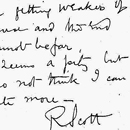 getting weaker of
and the end
not be far.
seems a pity but
do not think I can
more —
R Scott